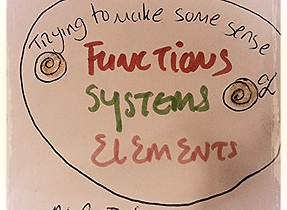 Trying to make some sense
Functions
Systems
2
Elements